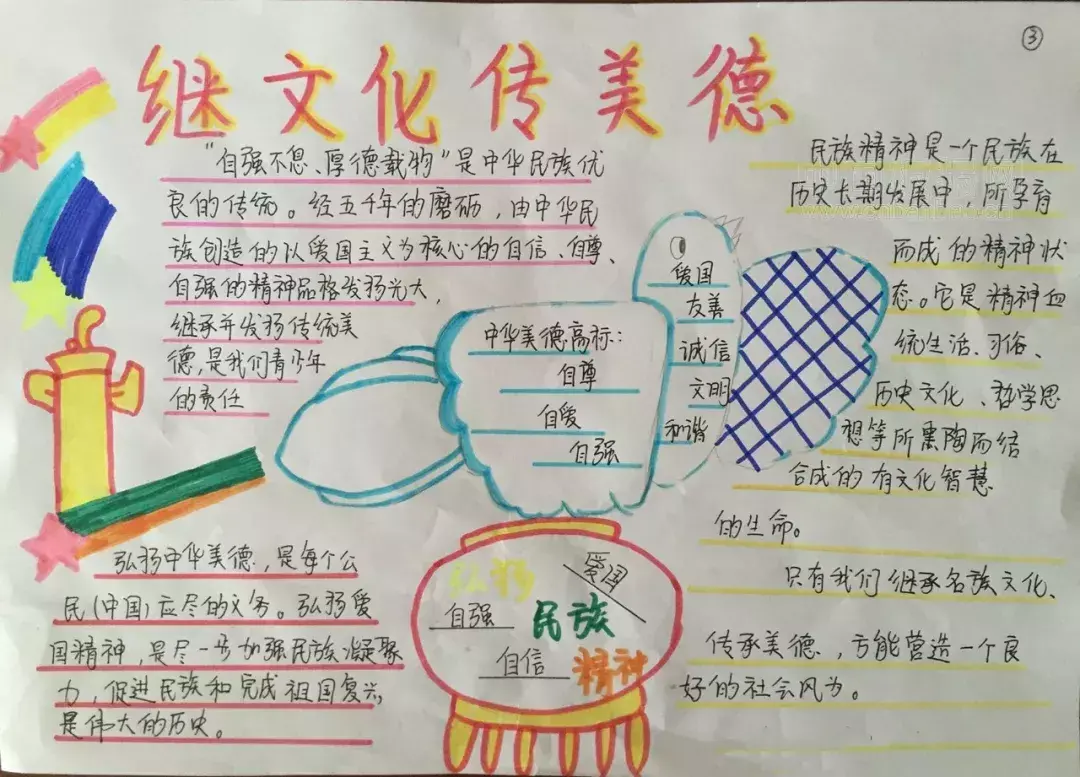 ③
继文化传美德
"自强不息、厚德载物"是中华民族优
良的传统。经五千年的磨砺，由中华民
族创造的以爱国主义为核心的自信、自尊、
自强的精神品格发扬光大，
继承并发扬传统美
德，是我们青少年
的责任
中华美德高标：
自尊
自爱
自强
爱国
友善
诚信
文明
和谐
民族精神是一个民族在
历史长期发展中，所孕育
而成的精神状
态。它是精神血
统生活、习俗、
历史文化、哲学思
想等所熏陶而结
合成的有文化智慧
的生命。
只有我们继承名族文化、
传承美德，方能营造一个良
好的社会风为。
弘扬中华美德，是每个公
民（中国）应尽的义务。弘扬爱
国精神，是尽一步加强民族凝聚
力，促进民族和完成祖国复兴，
是伟大的历史。
弘扬
爱国
自强
民族
自信
精神